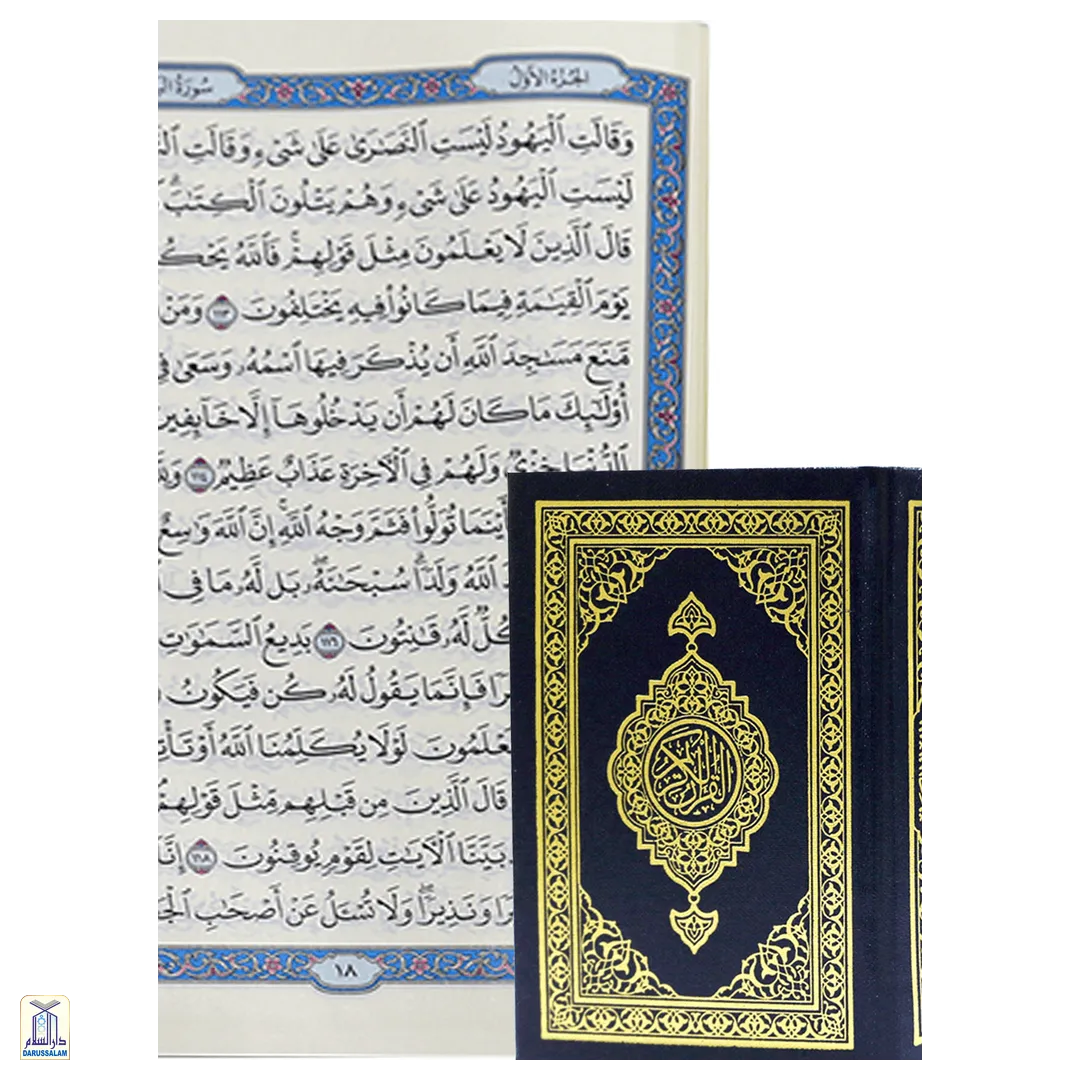 الجُزْءُ الأَوَّلُ
سُورَةُ
وَقَالَتِ ٱلْيَهُودُ لَيْسَتِ ٱلنَّصَٰرَىٰ عَلَىٰ شَىْءٍ وَقَالَتِ
لَيْسَتِ ٱلْيَهُودُ عَلَىٰ شَىْءٍ وَهُمْ يَتْلُونَ ٱلْكِتَٰبَۗ
قَالَ ٱلَّذِينَ لَا يَعْلَمُونَ مِثْلَ قَوْلِهِمْۚ فَٱللَّهُ يَحْكُ
يَوْمَ ٱلْقِيَٰمَةِ فِيمَا كَانُوا۟ فِيهِ يَخْتَلِفُونَ ١١٣ وَمَنْ
مَّنَعَ مَسَٰجِدَ ٱللَّهِ أَن يُذْكَرَ فِيهَا ٱسْمُهُۥ وَسَعَىٰ فِى
أُو۟لَٰٓئِكَ مَا كَانَ لَهُمْ أَن يَدْخُلُوهَآ إِلَّا خَآئِفِين
ٱلدُّنْيَا خِزْىٌ وَلَهُمْ فِى ٱلْءَاخِرَةِ عَذَابٌ عَظِيمٌ ١١٤
أَيْنَمَا تُوَلُّوا۟ فَثَمَّ وَجْهُ ٱللَّهِۚ إِنَّ ٱللَّهَ وَٰسِعٌ
ٱللَّهُ وَلَدًاۗ سُبْحَٰنَهُۥۖ بَل لَّهُۥ مَا فِى
كُلٌّ لَّهُۥ قَٰنِتُونَ ١١٦ بَدِيعُ ٱلسَّمَٰوَٰتِ
فَإِنَّمَا يَقُولُ لَهُۥ كُن فَيَكُونُ
عْلَمُونَ لَوْلَا يُكَلِّمُنَا ٱللَّهُ أَوْ تَأْتِ
قَالَ ٱلَّذِينَ مِن قَبْلِهِم مِّثْلَ قَوْلِهِمْ
بَيَّنَّا ٱلْءَايَٰتِ لِقَوْمٍ يُوقِنُونَ ١١٨ إِنَّا
وَنَذِيرًاۖ وَلَا تُسْـَٔلُ عَنْ أَصْحَٰبِ
١٨
القرآن الكريم
دارالسلام
DARUSSALAM